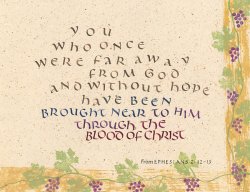 you
who once
were far away
from God
and without hope
have been
brought near to Him
through the
blood of Christ
From EPHESIANS 2:12-13